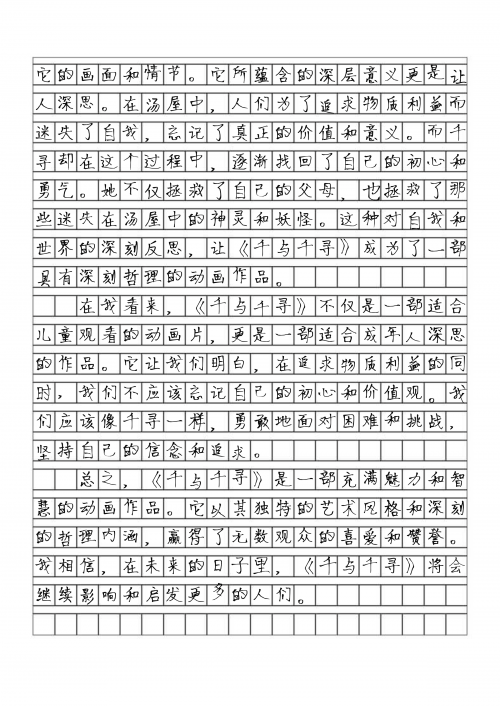 它的画面和情节。它所蕴含的深层意义更是让
人深思。在汤屋中，人们为了追求物质利益而
迷失了自我，忘记了真正的价值和意义。而千
寻却在这个过程中，逐渐找回了自己的初心和
勇气。她不仅拯救了自己的父母，也拯救了那
些迷失在汤屋中的神灵和妖怪。这种对自我和
世界的深刻反思，让《千与千寻》成为了一部
具有深刻哲理的动画作品。
在我看来，《千与千寻》不仅是一部适合
儿童观看的动画片，更是一部适合成年人深思
的作品。它让我们明白，在追求物质利益的同
时，我们不应该忘记自己的初心和价值观。我
们应该像千寻一样，勇敢地面对困难和挑战，
坚持自己的信念和追求。
总之，《千与千寻》是一部充满魅力和智
慧的动画作品。它以其独特的艺术风格和深刻
的哲理内涵，赢得了无数观众的喜爱和赞誉。
我相信，在未来的日子里，《千与千寻》将会
继续影响和启发更多的人们。